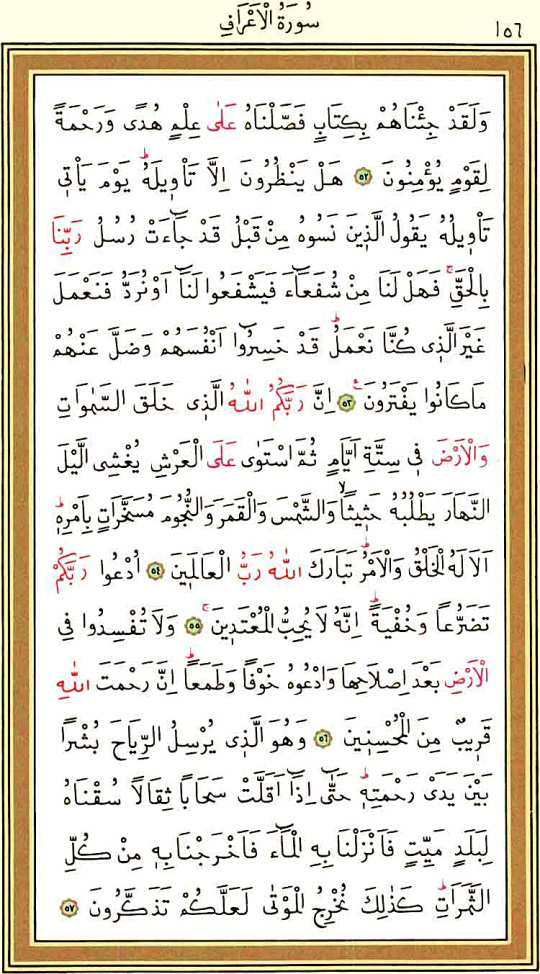 سُورَةُ الْاَعْرَافِ
١٥٦
وَلَقَدْ جِئْنَاهُمْ بِكِتَابٍ فَصَّلْنَاهُ عَلٰى عِلْمٍ هُدًى وَرَحْمَةً
لِقَوْمٍ يُؤْمِنُونَ ٥٢ هَلْ يَنْظُرُونَ اِلَّا تَأْوِيلَهُۜ يَوْمَ يَأْتٖي
تَأْوِيلُهُ يَقُولُ الَّذٖينَ نَسُوهُ مِنْ قَبْلُ قَدْ جَٓاءَتْ رُسُلُ رَبِّنَا
بِالْحَقِّۚ فَهَلْ لَنَا مِنْ شُفَعَٓاءَ فَيَشْفَعُوا لَنَٓا اَوْ نُرَدُّ فَنَعْمَلَ
غَيْرَ الَّذٖي كُنَّا نَعْمَلُۜ قَدْ خَسِرُٓوا اَنْفُسَهُمْ وَضَلَّ عَنْهُمْ
مَا كَانُوا يَفْتَرُونَࣖ ٥٣ اِنَّ رَبَّكُمُ اللّٰهُ الَّذٖي خَلَقَ السَّمٰوَاتِ
وَالْاَرْضَ فٖي سِتَّةِ اَيَّامٍ ثُمَّ اسْتَوٰى عَلَى الْعَرْشِ يُغْشِي الَّيْلَ
النَّهَارَ يَطْلُبُهُ حَثٖيثًاۙ وَالشَّمْسَ وَالْقَمَرَ وَالنُّجُومَ مُسَخَّرَاتٍ بِاَمْرِهٖۜ
اَلَا لَهُ الْخَلْقُ وَالْاَمْرُۜ تَبَارَكَ اللّٰهُ رَبُّ الْعَالَمٖينَ ٥٤ اُدْعُوا رَبَّكُمْ
تَضَرُّعًا وَخُفْيَةًۜ اِنَّهُ لَا يُحِبُّ الْمُعْتَدٖينَۚ ٥٥ وَلَا تُفْسِدُوا فِي
الْاَرْضِ بَعْدَ اِصْلَاحِهَا وَادْعُوهُ خَوْفًا وَطَمَعًاۜ اِنَّ رَحْمَتَ اللّٰهِ
قَرٖيبٌ مِنَ الْمُحْسِنٖينَ ٥٦ وَهُوَ الَّذٖي يُرْسِلُ الرِّيَاحَ بُشْرًا
بَيْنَ يَدَيْ رَحْمَتِهٖۜ حَتّٰٓى اِذَٓا اَقَلَّتْ سَحَابًا ثِقَالًا سُقْنَاهُ
لِبَلَدٍ مَيِّتٍ فَاَنْزَلْنَا بِهِ الْمَٓاءَ فَاَخْرَجْنَا بِهٖ مِنْ كُلِّ
الثَّمَرَاتِۜ كَذٰلِكَ نُخْرِجُ الْمَوْتٰى لَعَلَّكُمْ تَذَكَّرُونَ ٥٧